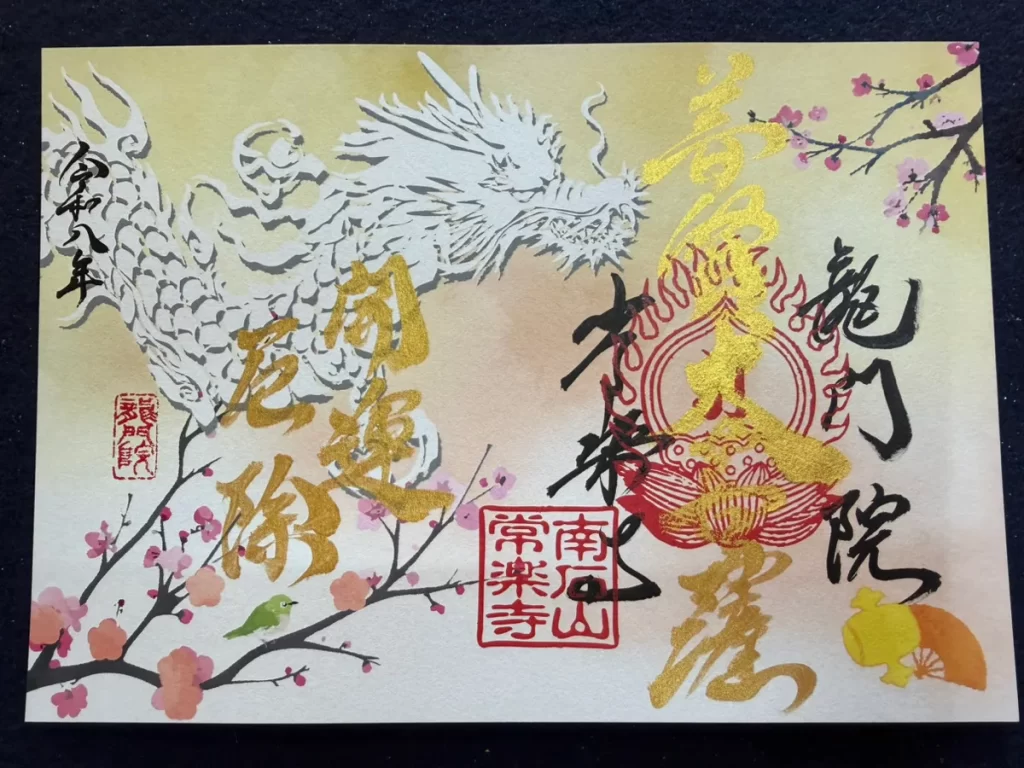 龍門院
普賢大菩薩
常楽寺
南石山
常楽寺
開運
厄除
令和八年
龍門院